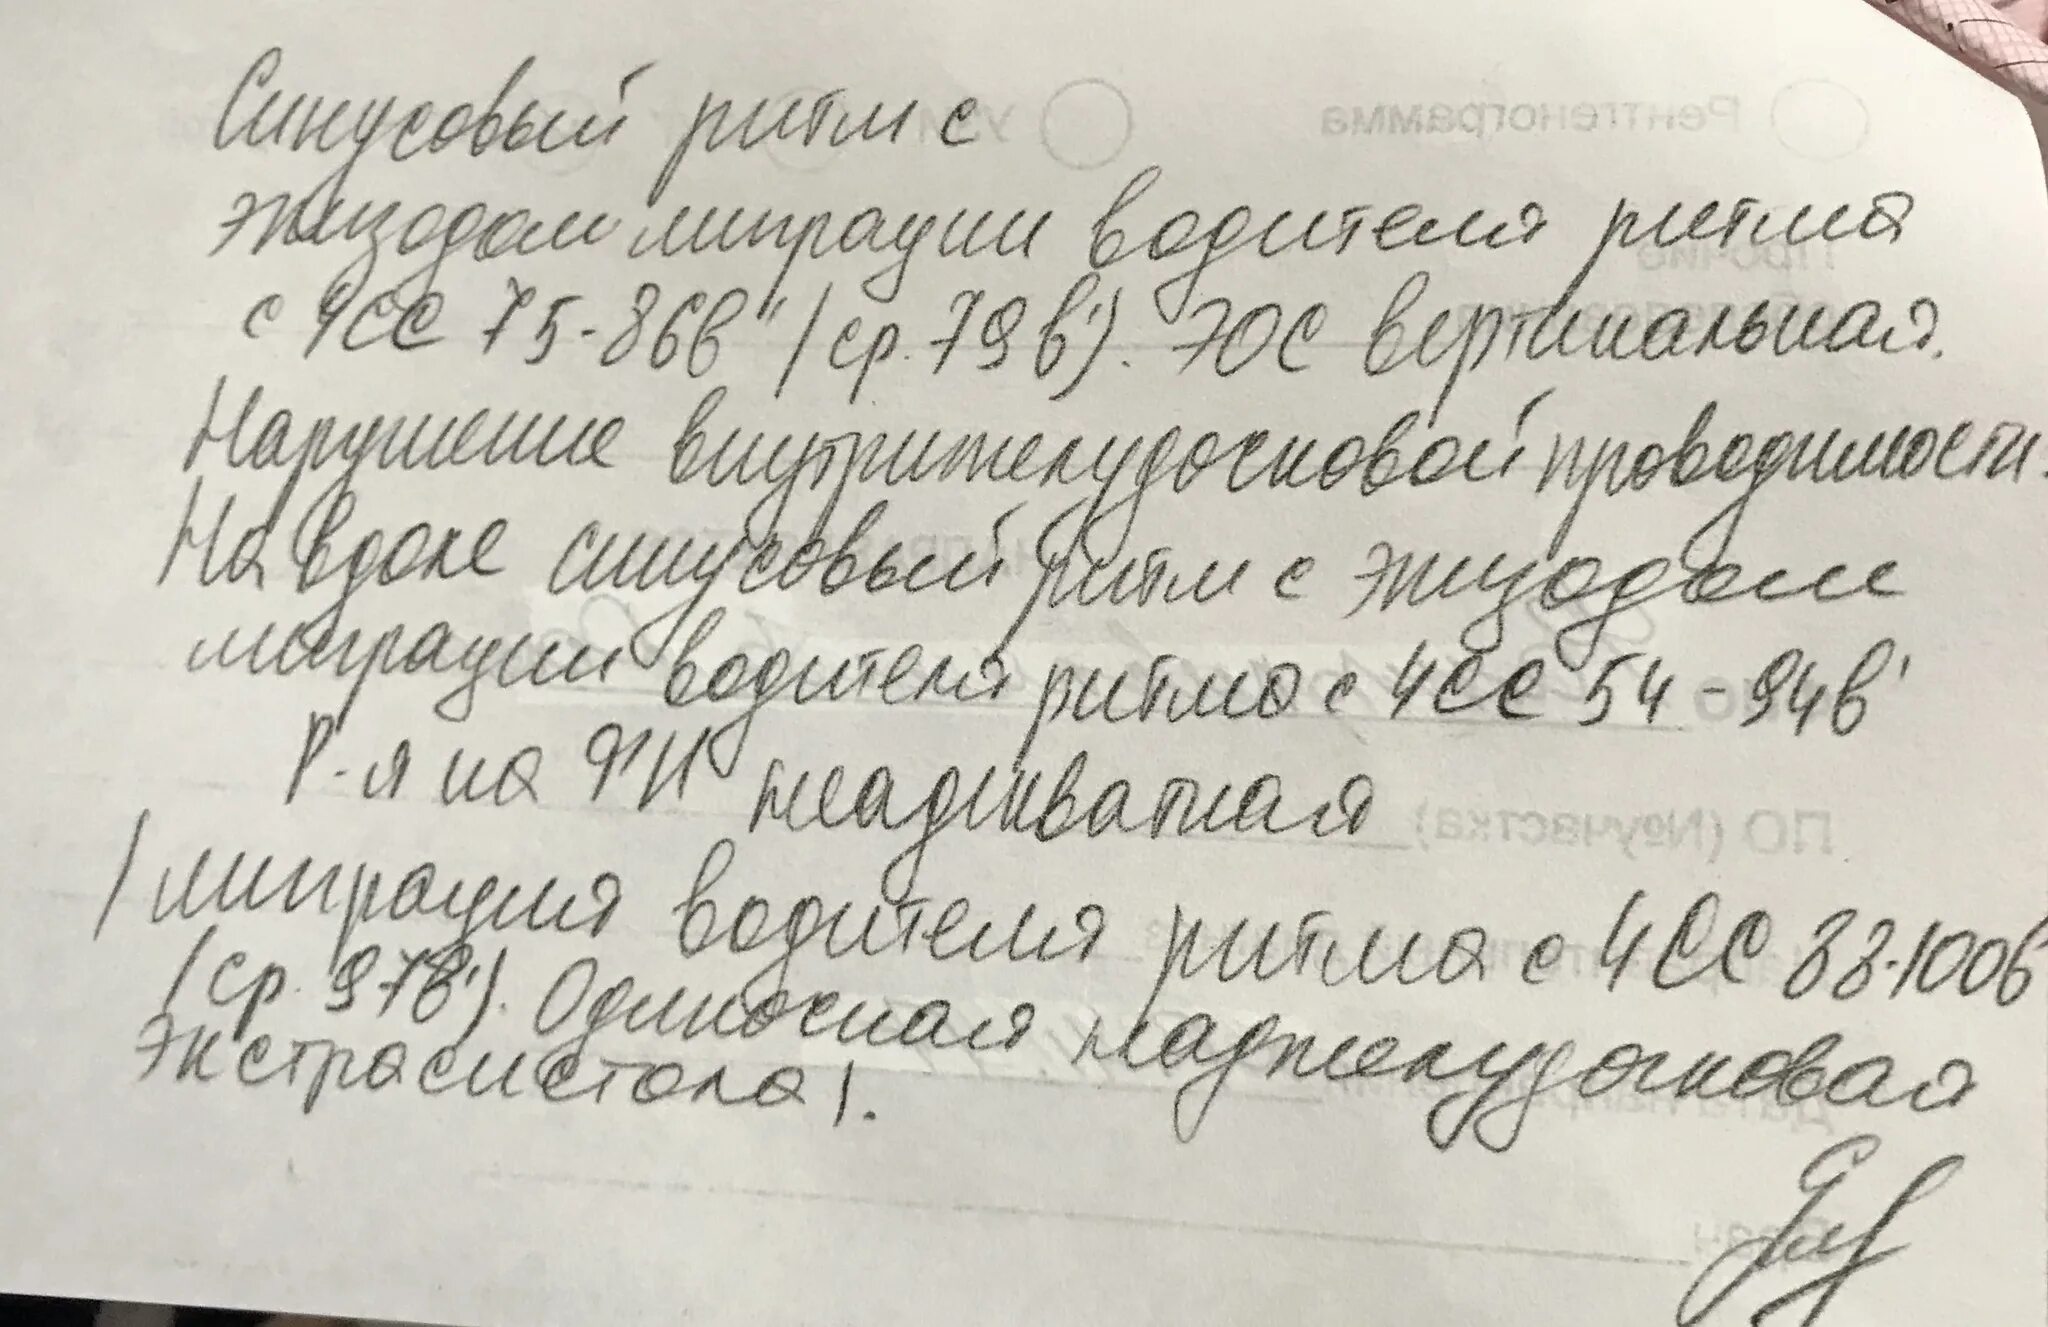 Синусовый ритм с
эпизодом миграции водителя ритма
с ЧСС 75-86в' (ср. 79в'). ЭОС вертикальная.
Нарушение внутрижелудочковой проводимости.
На вдохе синусовый ритм с эпизодом
миграции водителя ритма с ЧСС 54-94в'
Р-я на ФН неадекватная
(миграция водителя ритма с ЧСС 88-100в
(ср. 97в'). Одиночная наджелудочковая
экстрасистола).
Рентгенограмма
Прочие
ПО (№участка)
Дата направления
Врач